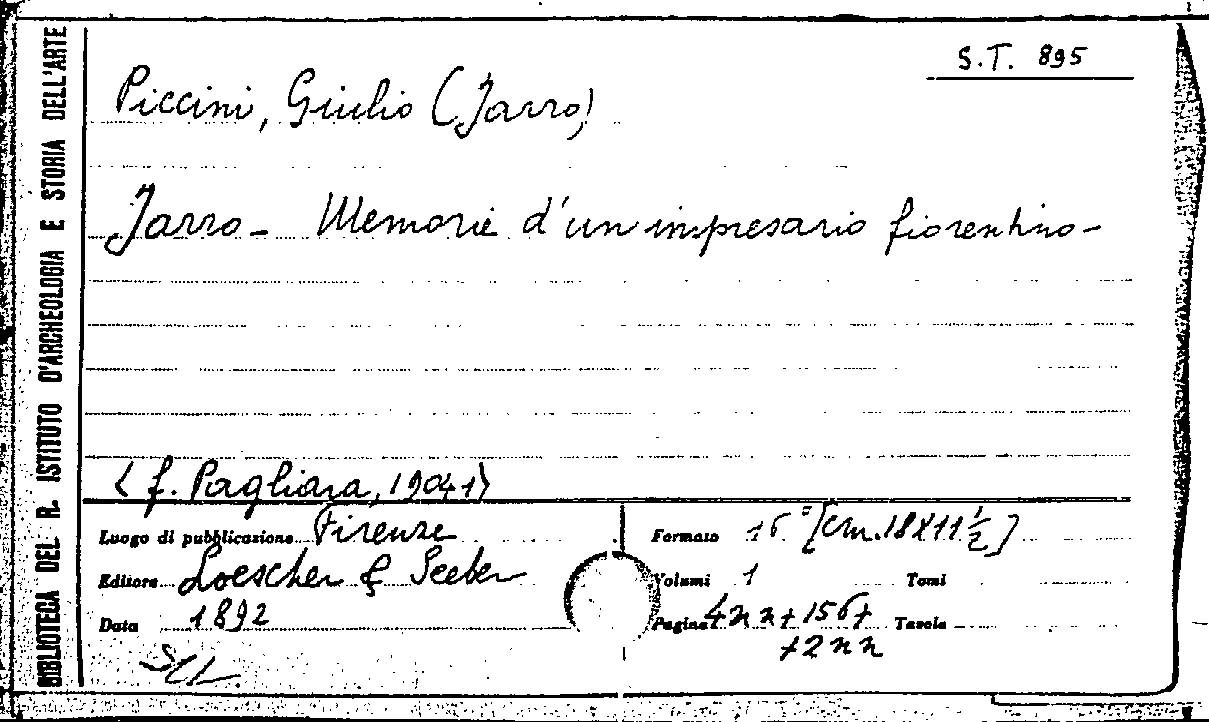 BIBLIOTECA DEL R. ISTITUTO D'ARCHEOLOGIA E STORIA DELL'ARTE
S.T. 895
Piccini, Giulio (Jarro)
Jarro - Memorie d'un impresario fiorentino -
(f. Pagliara, 1904-1)
Luogo di pubblicazione Firenze
Formato 16° [cm. 18X11½]
Editore Loescher & Seeber
Volumi 1 Tomi
Data 1892
Pagine 4nn+156+
+2nn
Tavole